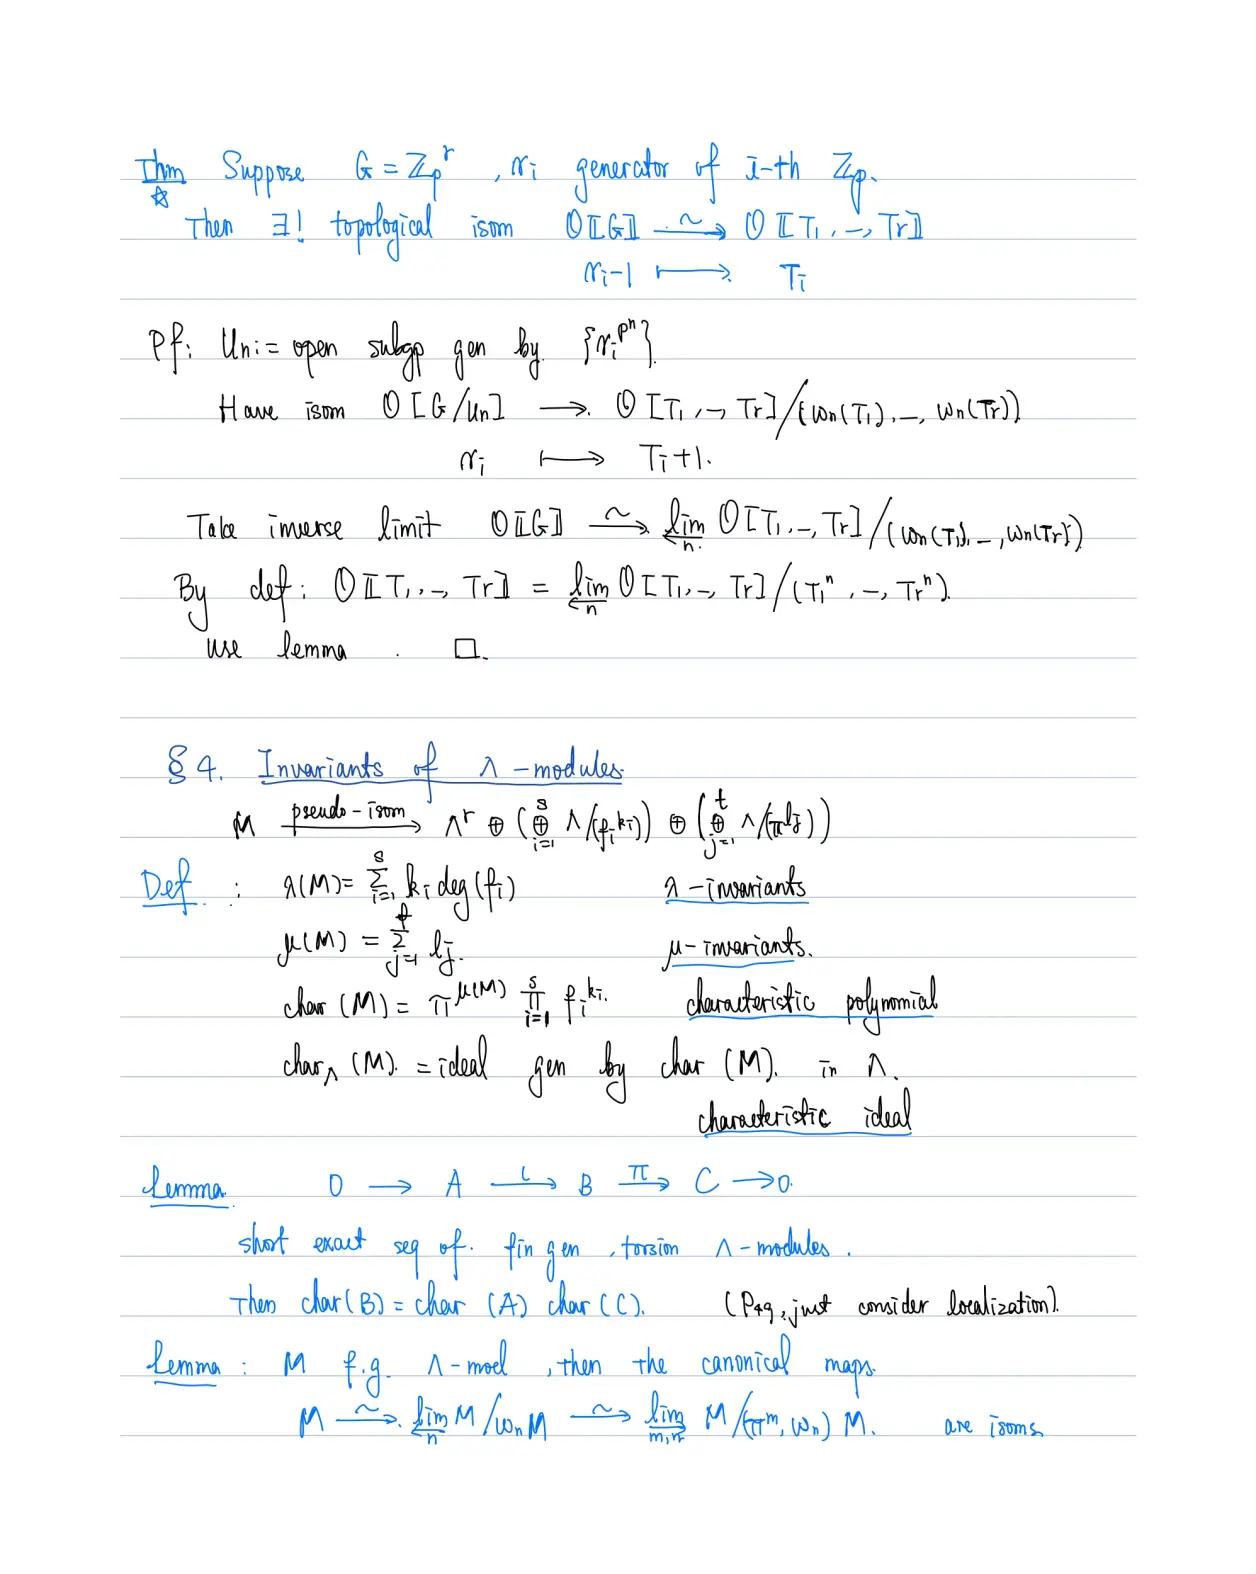 Thm Suppose G = ℤ_p^r , γ_i generator of i-th ℤ_p.
☆ Then ∃! topological isom 𝒪⟦G⟧ ⥲ 𝒪⟦T_1, –, T_r⟧
γ_i-1 ⟼ T_i
Pf: U_n := open subgp gen by {γ_i^{p^n}}.
Have isom 𝒪[G/U_n] → 𝒪[T_1, –, T_r]/(ω_n(T_1), –, ω_n(T_r))
γ_i ⟼ T_i+1.
Take inverse limit 𝒪⟦G⟧ ⥲ lim_{←n} 𝒪[T_1, –, T_r]/(ω_n(T_1), –, ω_n(T_r))
By def: 𝒪⟦T_1, –, T_r⟧ = lim_{←n} 𝒪[T_1, –, T_r]/(T_1^n, –, T_r^n).
use lemma. □.
§ 4. Invariants of Λ-modules
M —pseudo-isom→ Λ^r ⊕ (⊕_{i=1}^s Λ/(f_i^{k_i})) ⊕ (⊕_{j=1}^t Λ/(π^{l_j}))
Def : λ(M) = Σ_{i=1}^s k_i deg(f_i) λ-invariants
μ(M) = Σ_{j=1}^t l_j. μ-invariants.
char (M) = π^{μ(M)} ∏_{i=1}^s f_i^{k_i}. characteristic polynomial
char_Λ (M). = ideal gen by char (M). in Λ.
characteristic ideal
Lemma. 0 → A —ι→ B —π→ C → 0.
short exact seq of. fin gen, torsion Λ-modules.
Then char(B) = char (A) char (C). (P49, just consider localization).
Lemma : M f.g. Λ-mod, then the canonical maps.
M ⥲ lim_{←n} M/ω_n M ⥲ lim_{←m,n} M/(π^m, ω_n) M. are isoms